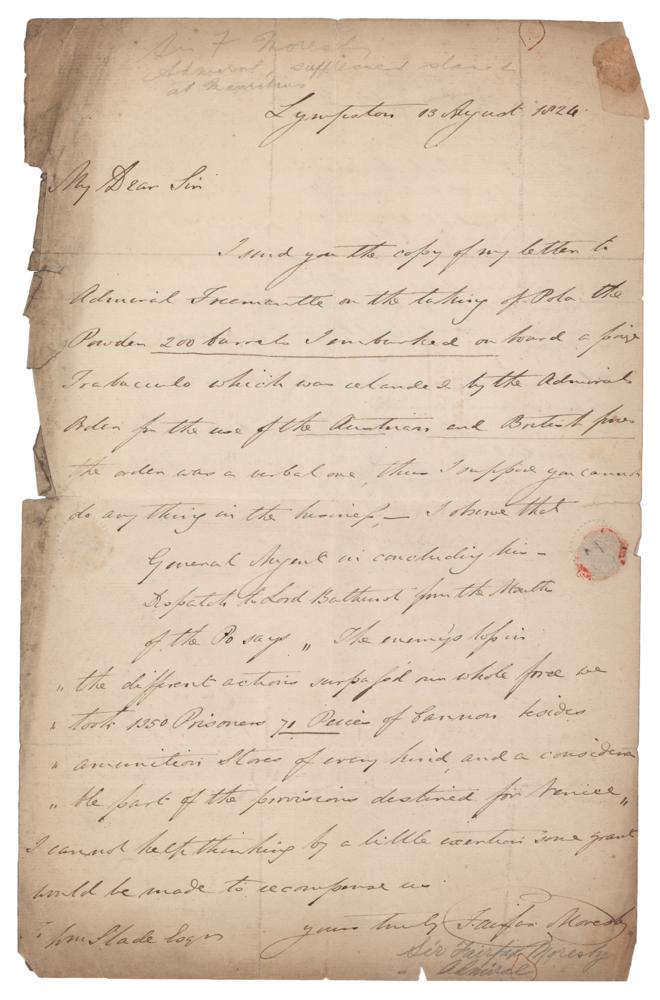 Sir F Moresby
Admiral, suppressed slavery
at Mauritius
Lympston 13 August 1824
My Dear Sir
I send you the copy of my letter to
Admiral Freemantle on the taking of Pola the
Powder 200 barrels I embarked on board a prize
Trabaculo which was retained by the Admirals
Order for the use of the Austrian and British forces
the order was a verbal one, thus I suppose you cannot
do any thing in the business,— I observe that
General Nugent in concluding his –
Dispatch to Lord Bathurst from the Mouth
of the Po says „ The enemy's loss in
„ the different actions surpass'd our whole force we
„ took 1350 Prisoners 71 Peices of Cannon besides
„ amunition Stores of every kind, and a considera
„ ble part of the provisions destined for Venice „
I cannot help thinking by a little exertion some grant
would be made to recompense us
yours truly Fairfax Moresby
To Wm Slade Esqr
Sir Fairfax Moresby
Admiral